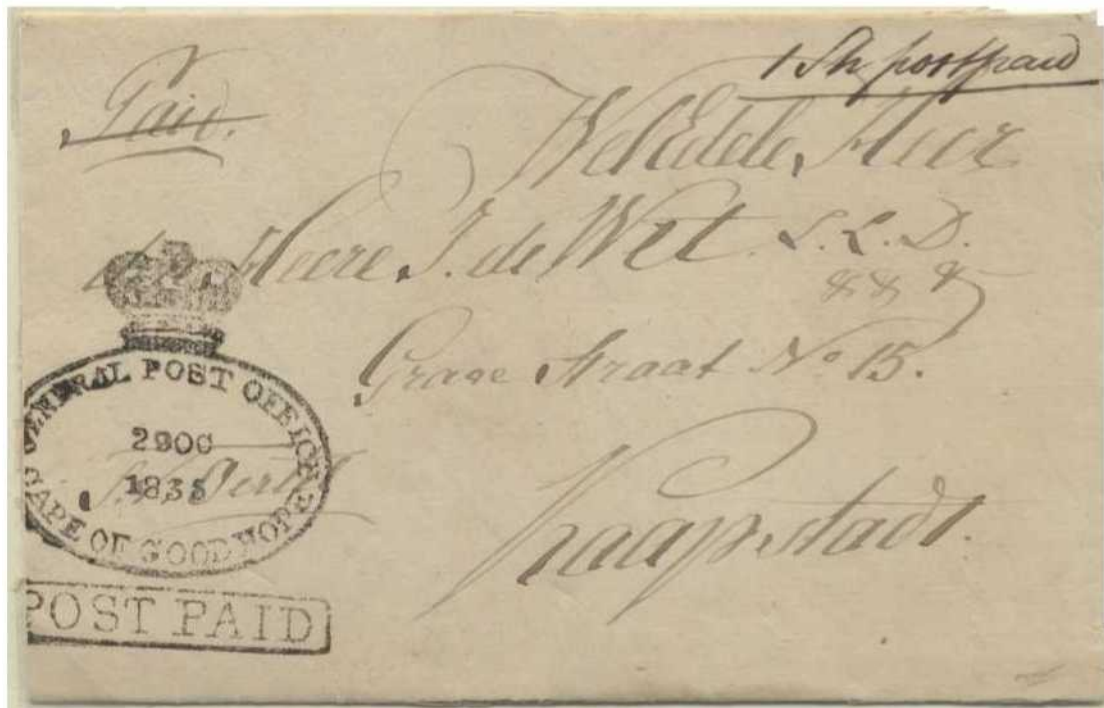 1 Sh postpaid
Paid.
WelEdele Heer
de Heere J. de Wet. L.L.D.
&& &
Grave Straat No 15.
Kaapstadt.
GENERAL POST OFFICE
29OC
1835
CAPE OF GOOD HOPE
POST PAID